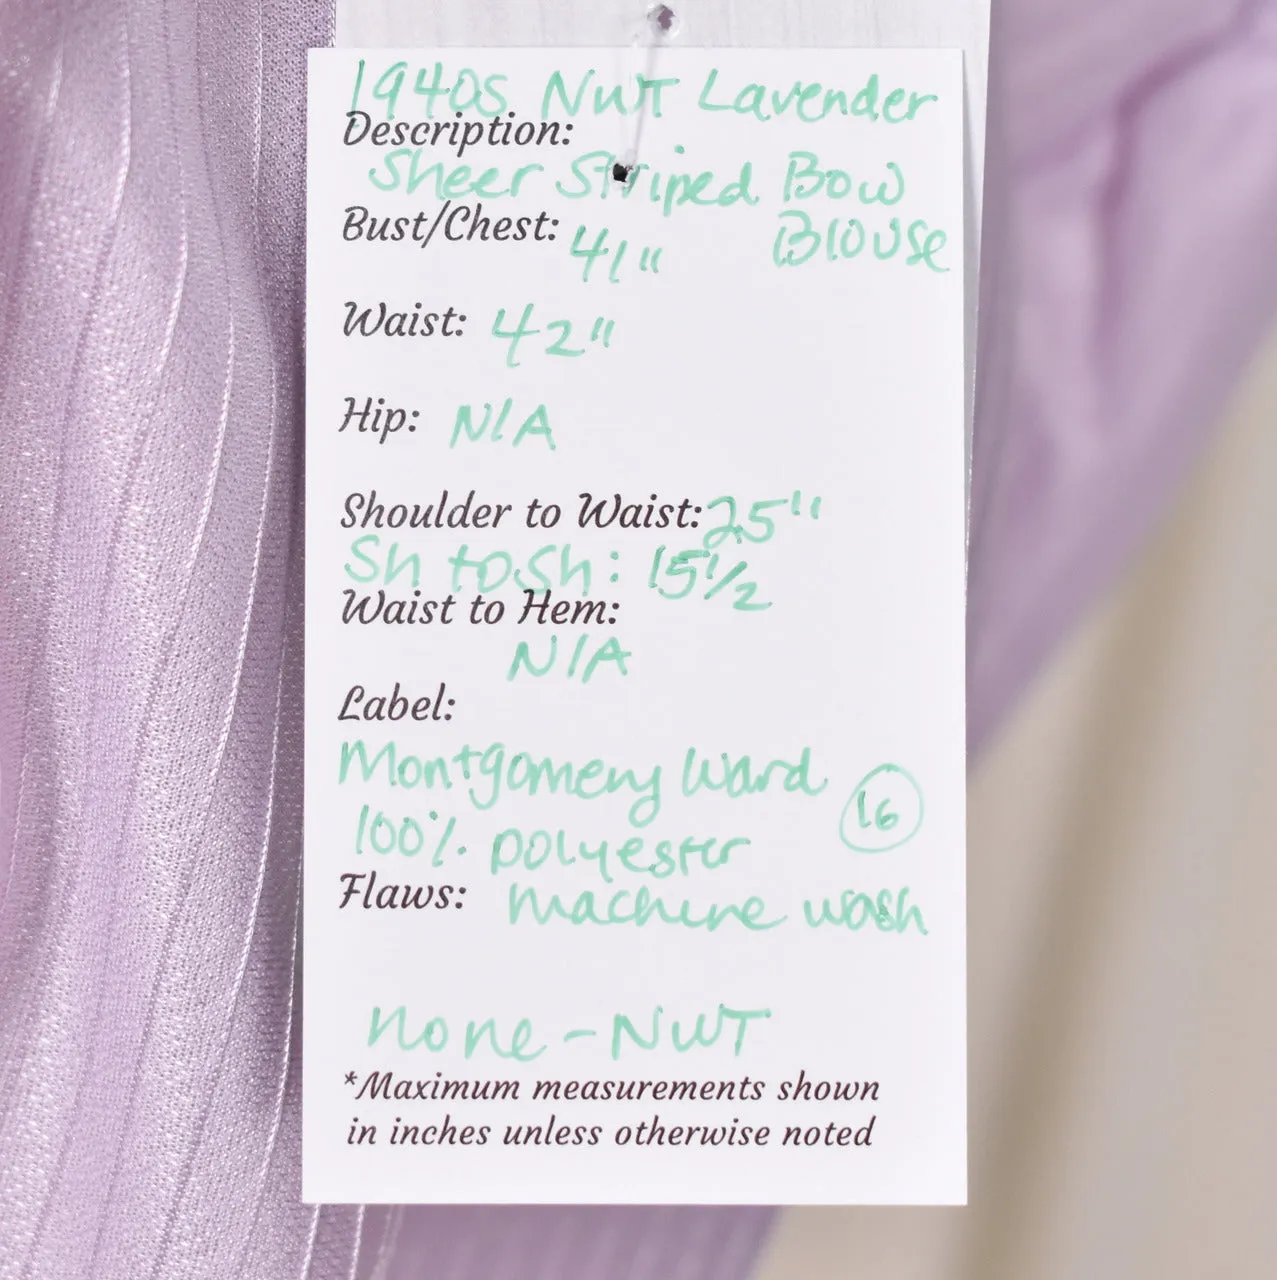 1940s NWT Lavender
Description:
Sheer Striped Bow
Blouse
Bust/Chest: 41"
Waist: 42"
Hip: N/A
Shoulder to Waist: 25"
Sh to Sh: 15 1/2
Waist to Hem:
N/A
Label:
Montgomery Ward
16
100% polyester
Flaws: machine wash
none - NWT
*Maximum measurements shown
in inches unless otherwise noted